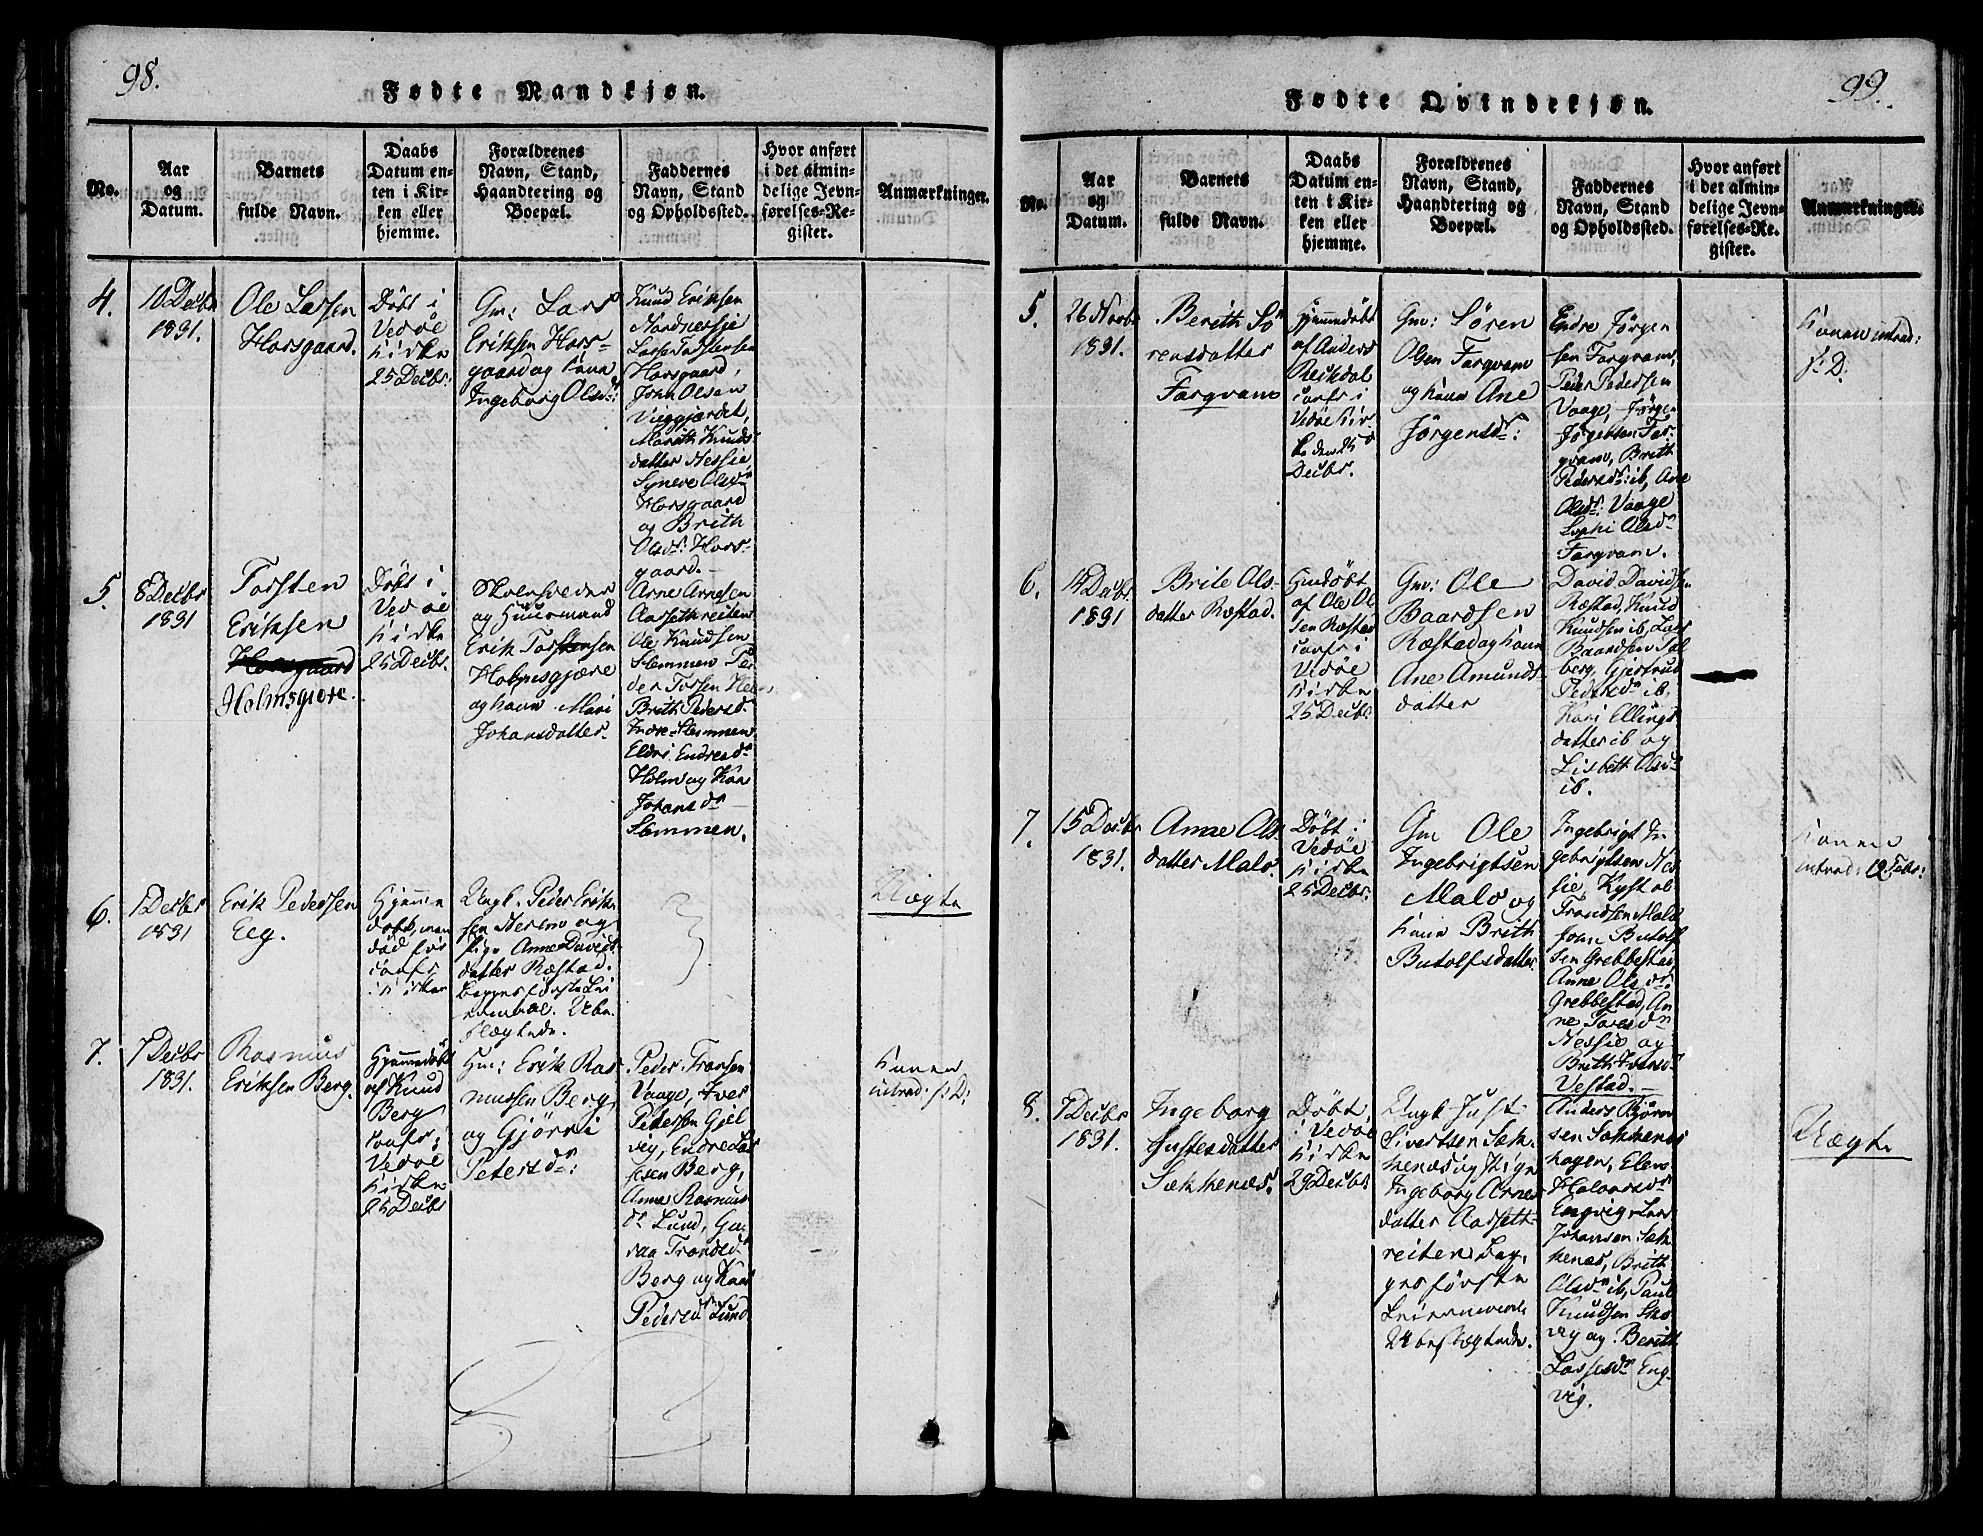 98.
Fødte Mandkjøn.
No.
Aar
og
Datum.
Barnets
fulde Navn.
Daabs
Datum en-
ten i Kir-
ken eller
hjemme.
Forældrenes
Navn, Stand,
Haandtering og
Boepæl.
Faddernes
Navn, Stand
og Opholdssted.
Hvor anført
i det almin-
delige Jevn-
førelses-Re-
gister.
Anmærkninger.
4.
10 Decbr
1831.
Ole Larsen
Horsgaard.
Döbt i
Vedöe
Kirke
25 Decbr:
Gm: Lars
Eriksen Hors-
gaard og Kone
Ingeborg Olsdr:
Knud Eriksen
Nordnessie
Lars Torstensen
Horsgaard,
John Olsen
Viiggjærdet,
Marith Knuds-
datter Nessie,
Syneve Olsdr
Horsgaard
og Brith
Olsdr: Hors-
gaard.
5.
8 Decbr
1831
Torsten
Eriksen
Horsgaard
Holmsgiere.
Döbt i
Vedöe
Kirke
25 Decbr.
og Huusmand
Erik Torstensen
Holmsgjære
og kone Mari
Johansdatter
Arne Arnesen
Aarsethreiten
Ole Knudsen
Slemmen Pe-
der Torsen
Brith Pedersdr
Indre-Slemmen
Eldri Endresdr
Holm og Kari
Johansdr
Slemmen.
6.
1 Decbr
1831
Erik Pedersen
Eeg.
Hjemme
döbt, men
död för
conf. i
Kirken
Ungk. Peder Erik-
sen og
Pige Anne Davids
datter Ræstad.
begges förste Lei
ermaal. Ube-
slægtede.
Uægte
7.
7 Decbr
1831.
Rasmus
Eriksen Berg.
Hjemmedöbt
af Knud
Berg
conf: i
Vedöe
Kirke
25 Decbr
Gm: Erik Ras
mussen Berg
og Gjörri
Petersdr:
Peder Transen
Vaage, Iver
Pedersen Gjel
vig, Endre Lar
sen Berg,
Anne Rasmus
dr Lund, Gu-
roe Trondsdr
Berg og Kari
Pedersdr Lund
Konen
introd: s: D:
99.
Fødte Qvindekjøn.
No.
Aar
og
Datum.
Barnets
fulde Navn.
Daabs
Datum en-
ten i Kir-
ken eller
hjemme.
Forældrenes
Navn, Stand,
Haandtering og
Boepæl.
Faddernes
Navn, Stand
og Opholdssted.
Hvor anført
i det almin-
delige Jevn-
førelses-Re-
gister.
Anmærkninger.
5.
26 Novbr
1831.
Berith Sö
rensdatter
Fargvam
Hjemmedöbt
af Anders
Reitdal
conf: i
Vedöe Kir
ke den 25
Decbr.
Gm: Sören
Olsen Fargvam
og kone Ane
Jörgensdr:
Endre Jörgen
sen Fargvam,
Peder Pedersen
Vaage, Jörgen
Jörgensen Far
gvam, Brith
Pedersdr: ib, Ane
Olsdr: Vaage
Sophi Olsdr
Fargvam.
Konen introd:
s: D.
6.
14 Decbr.
1831
Brite Ols-
datter Ræstad.
Hmdöbt
af Ole Ol
sen Ræstad
conf: i
Vedöe
Kirke
25 Decbr
Gm: Ole
Baardsen
Ræstad og kone
Ane Amunds-
datter
David Davidsen
Ræstad, Knud
Knudsen ib, Lars
Baardsen Sol
berg, Gjertrud
Pedersdr ib,
Kari Ellings
datter ib og
Lisbeth Olsdr
ib.
7.
15 Decbr
1831.
Anne Ols-
datter Malo.
Döbt i
Vedöe
Kirke
25 Decbr.
Gm Ole
Ingebrigtsen
Malo og
kone Brith
Butolfsdatter.
Ingebrigt In
gebrigtsen Nes
sie, Kystol
Trondsen Malo
John Butolf
sen Grebbestad
Anne Olsdr:
Grebbestad, An
ne Toresdr
Nessie og
Brith Iversdr
Vestad.
Konen
introd: 12 Febr:
8.
7 Decbr
1831.
Ingeborg
Justesdatter
Sækkenæs.
Döbt
i Vedöe
Kirke
29 Decbr
Ungk Just
Sivertsen Sæk-
kenæs og Pige
Ingeborg Arnes
datter Aarseth-
reiten Beg-
ges förste
Leiermaal
Ubeslægtede.
Anders Björn
sen Sækkenæs
hagen, Elen
Halvorsdr
Engvig, Lars
Johansen Sæk-
kenæs, Brith
Olsdr ib, Paul
Knudsen Sko
vig og Berith
Larsesdr Eng-
vig.
Uægte